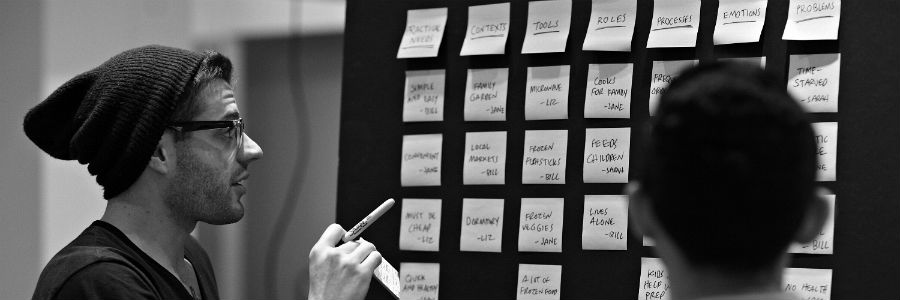 PRACTICAL
NEEDS
CONTEXTS
TOOLS
ROLES
PROCESSES
EMOTIONS
PROBLEMS
SIMPLE
AND EASY
-BILL
FAMILY
GARDEN
-JANE
MICROWAVE
-LIZ
COOKS
FOR FAMILY
-JANE
TIME-
STARVED
-SARAH
CONVENIENT
-JANE
LOCAL
MARKETS
-BILL
FROZEN
FISHSTICKS
-BILL
FEEDS
CHILDREN
-SARAH
MUST BE
CHEAP
-LIZ
DORMITORY
-LIZ
FROZEN
VEGGIES
-JANE
LIVES
ALONE
-BILL
-BILL
QUICK
AND HEALTHY
A LOT OF
FROZEN FOOD
KIDS
HELP
PREP
NO HEALTH